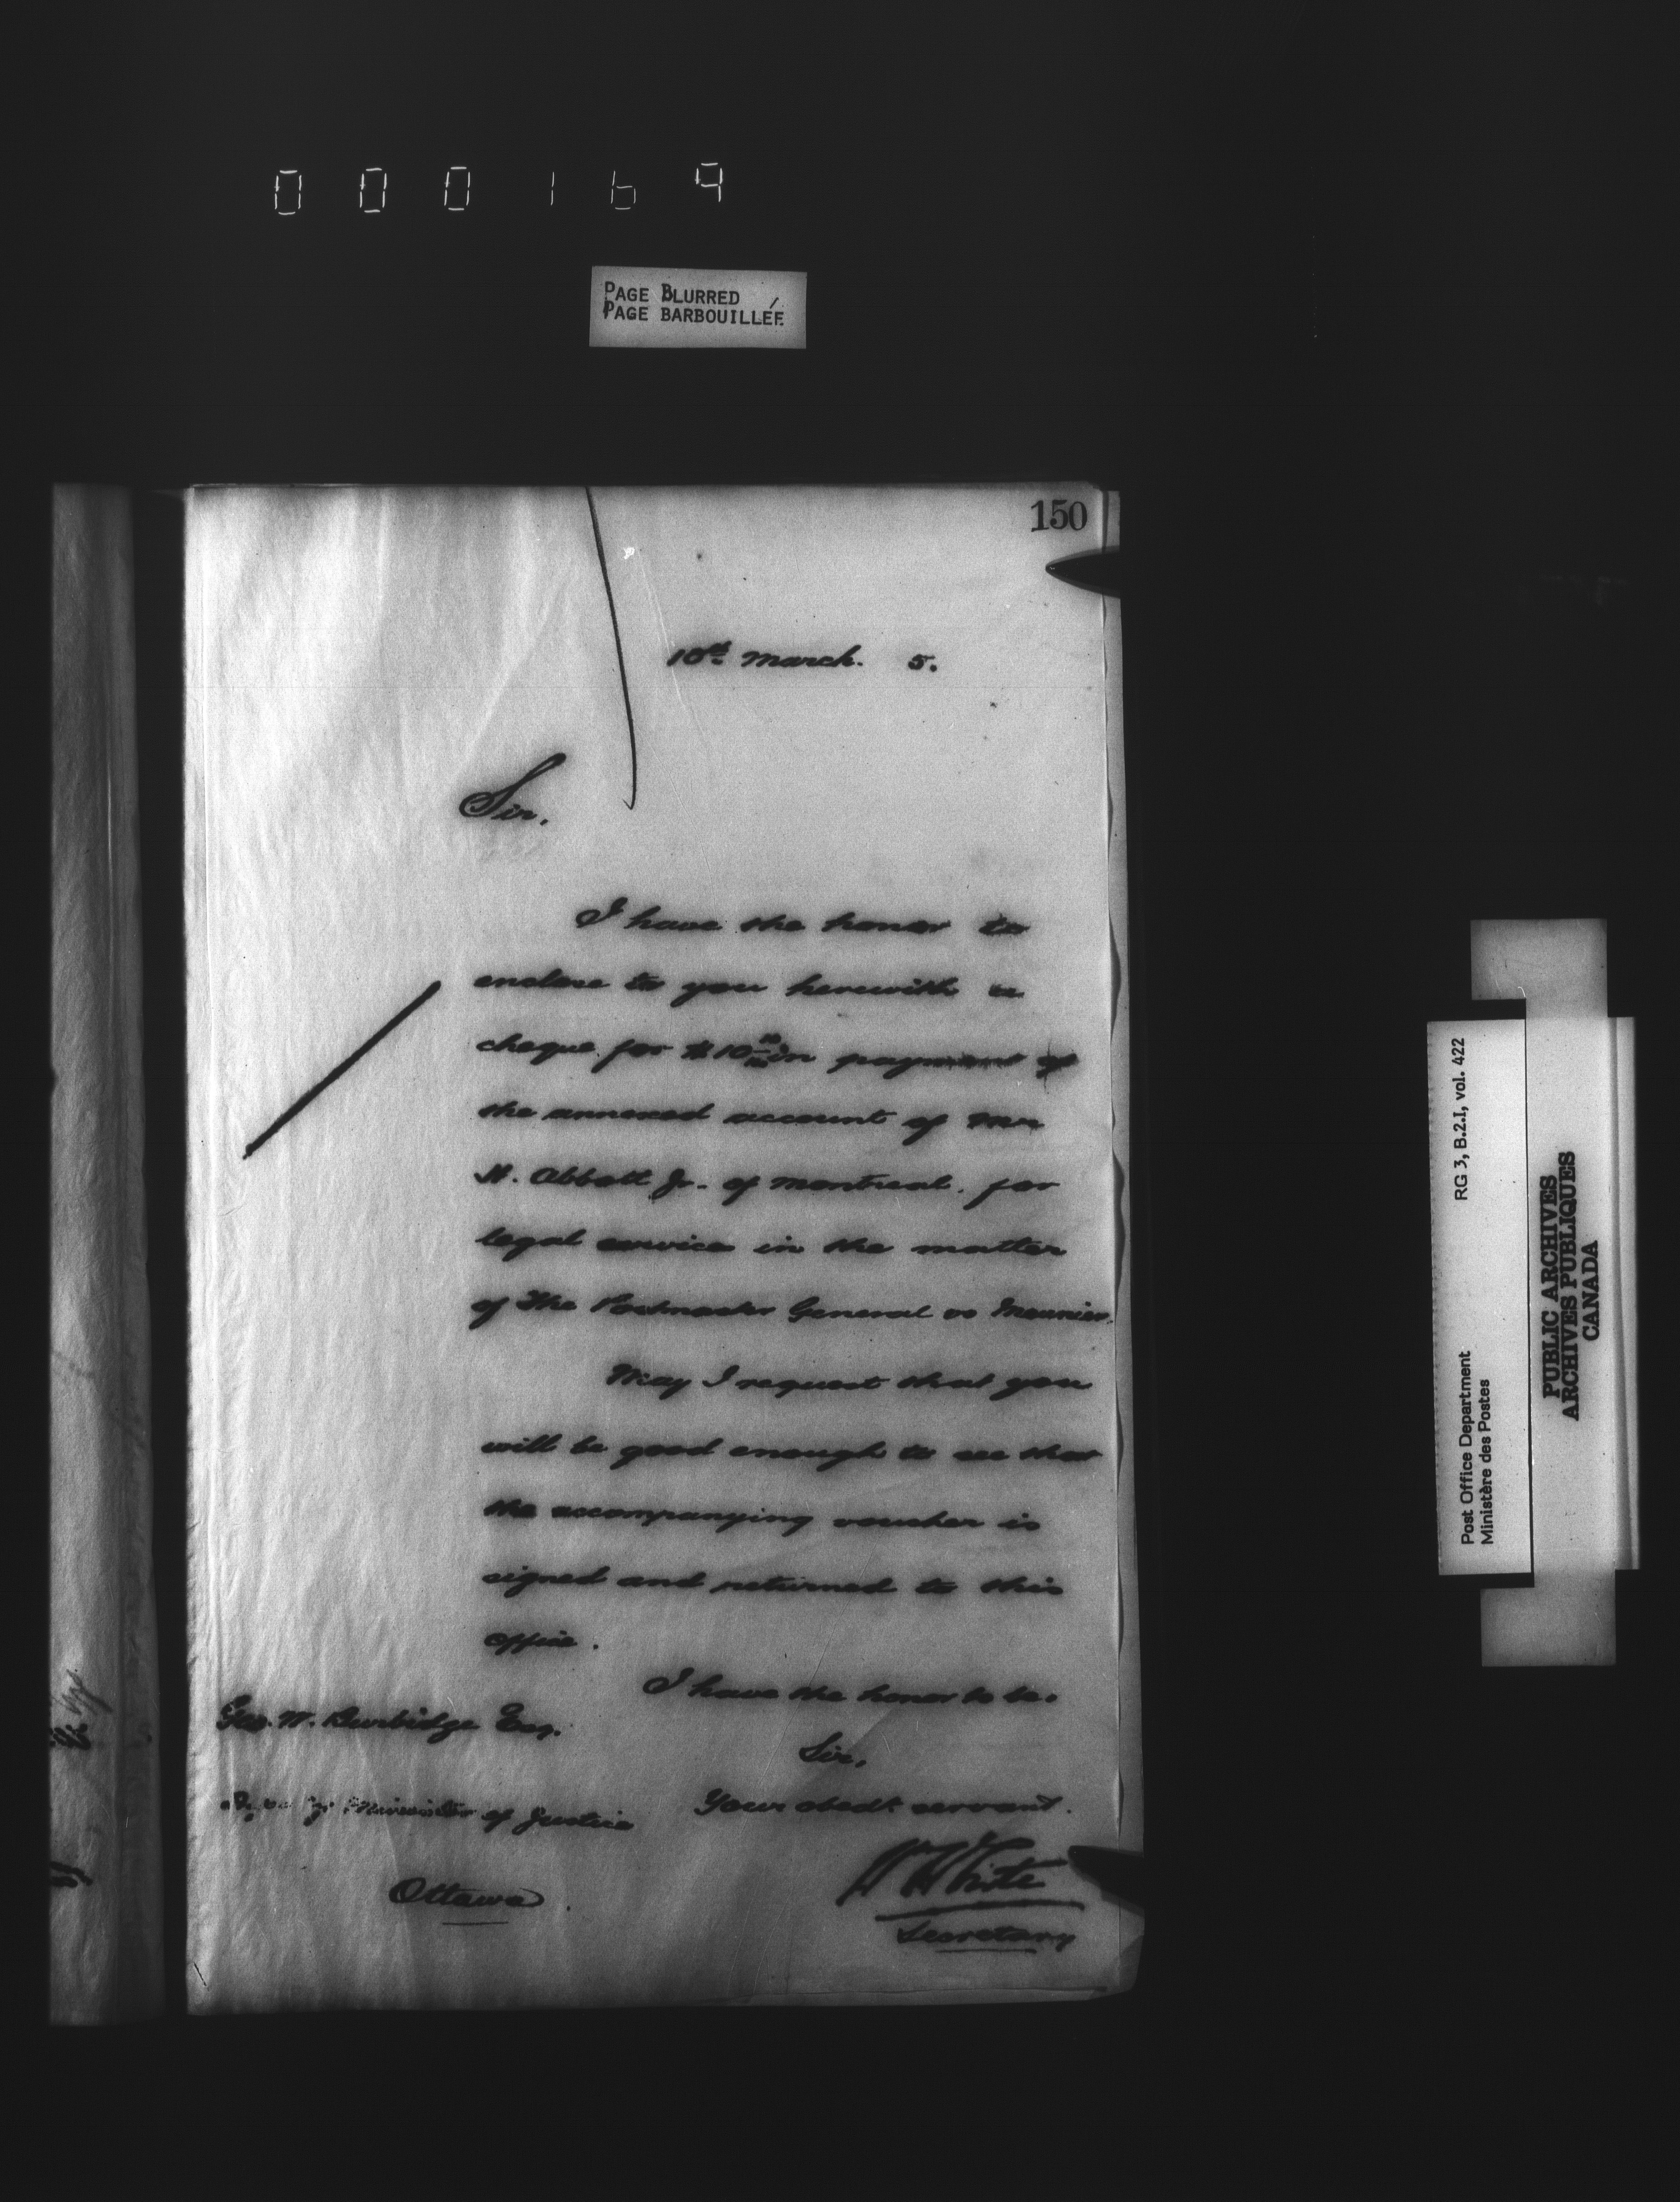 000169
PAGE BLURRED
PAGE BARBOUILLÉE
150
10th March. 5.
Sir,
I have the honor to
enclose to you herewith a
cheque for $10 in payment of
the annexed account of Mr
H. Abbott Jr. of Montreal. for
legal service in the matter
of The Postmaster General vs Meunier.
May I request that you
will be good enough to see that
the accompanying voucher is
signed and returned to this
office.
I have the honor to be.
Sir,
Your obedt servant.
W White
Secretary
Geo. W. Burbidge Esq.
Minister of Justice
Ottawa.
Post Office Department RG 3, B.2.I, vol. 422
Ministère des Postes
PUBLIC ARCHIVES
ARCHIVES PUBLIQUES
CANADA